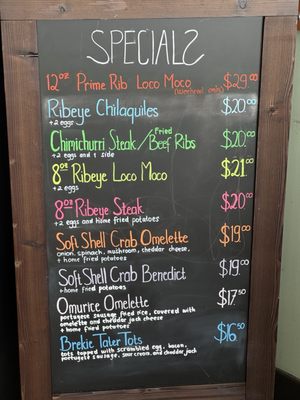 SPECIALS
12oz Prime Rib Loco Moco $29.00
(weekend only)
Ribeye Chilaquiles $20.00
+2 eggs
Chimichurri Steak/Fried Beef Ribs $20.00
+2 eggs and 1 side
8oz Ribeye Loco Moco $21.00
+2 eggs
8oz Ribeye Steak $20.00
+2 eggs and home fried potatoes
Soft Shell Crab Omelette $19.00
onion, spinach, mushroom, cheddar cheese,
+ home fried potatoes
Soft Shell Crab Benedict $19.00
+ home fried potatoes
Omurice Omelette $17.50
portuguese sausage fried rice, covered with
omelette and cheddar jack cheese
+ home fried potatoes
Brekie Tater Tots $16.50
tots topped with scrambled egg, bacon,
portuguese sausage, sour cream, and cheddar jack